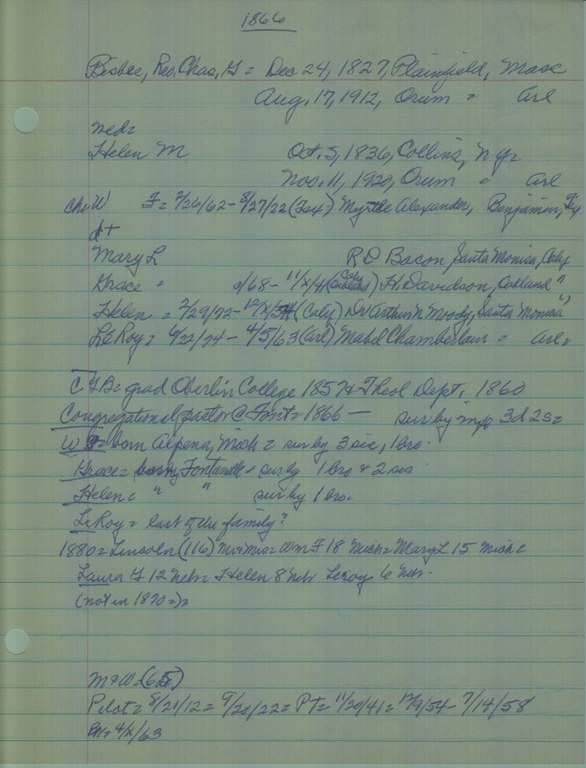 1866
Bisbee, Rev. Chas, G = Dec 24, 1827, Plainfield, Mass
Aug. 17, 1912, Orum = Arl
Med=
Helen M Oct. 5, 1836, Collins, N Y=
Nov. 11, 1920, Orum = Arl
ch= W F= 2/26/62 - 8/27/22 (Tex) Myrtle Alexander, Benjamin,
d+
Mary L R D Bacon Santa Monica, Caly
Grace = /68 - 11/X/41 H. Davidson, Oakland "
Helen = 2/29/72 - (Caly) Dr Arthur N Moody, Santa Monica "
LeRoy = 6/22/74 - 4/5/63 (Arl) Mabel Chamberlain = Arl=
C G B= grad Oberlin College 1857 & Theol Dept, 1860
Congregational pastor @ Font= 1866 — sur by 3d 2s=
W F= born Alpena, Mich = sur by 3 sis, 1 bro.
Grace= born Fontanelle = sur by 1 bro & 2 sis
Helen= " " sur by 1 bro.
LeRoy = last of the family?
1880= Lincoln (116) Mr & Mrs= Wm F 18 Mich= Mary L 15 Mich=
Laura G 12 Neb= Helen 8 Neb= Leroy 6 Neb.
(not in 1870=)=
M & W= (65)
Pilot= 8/21/12 = 9/20/22 = PT= 11/20/41 = 12/9/54 - 7/14/58
4/X/63